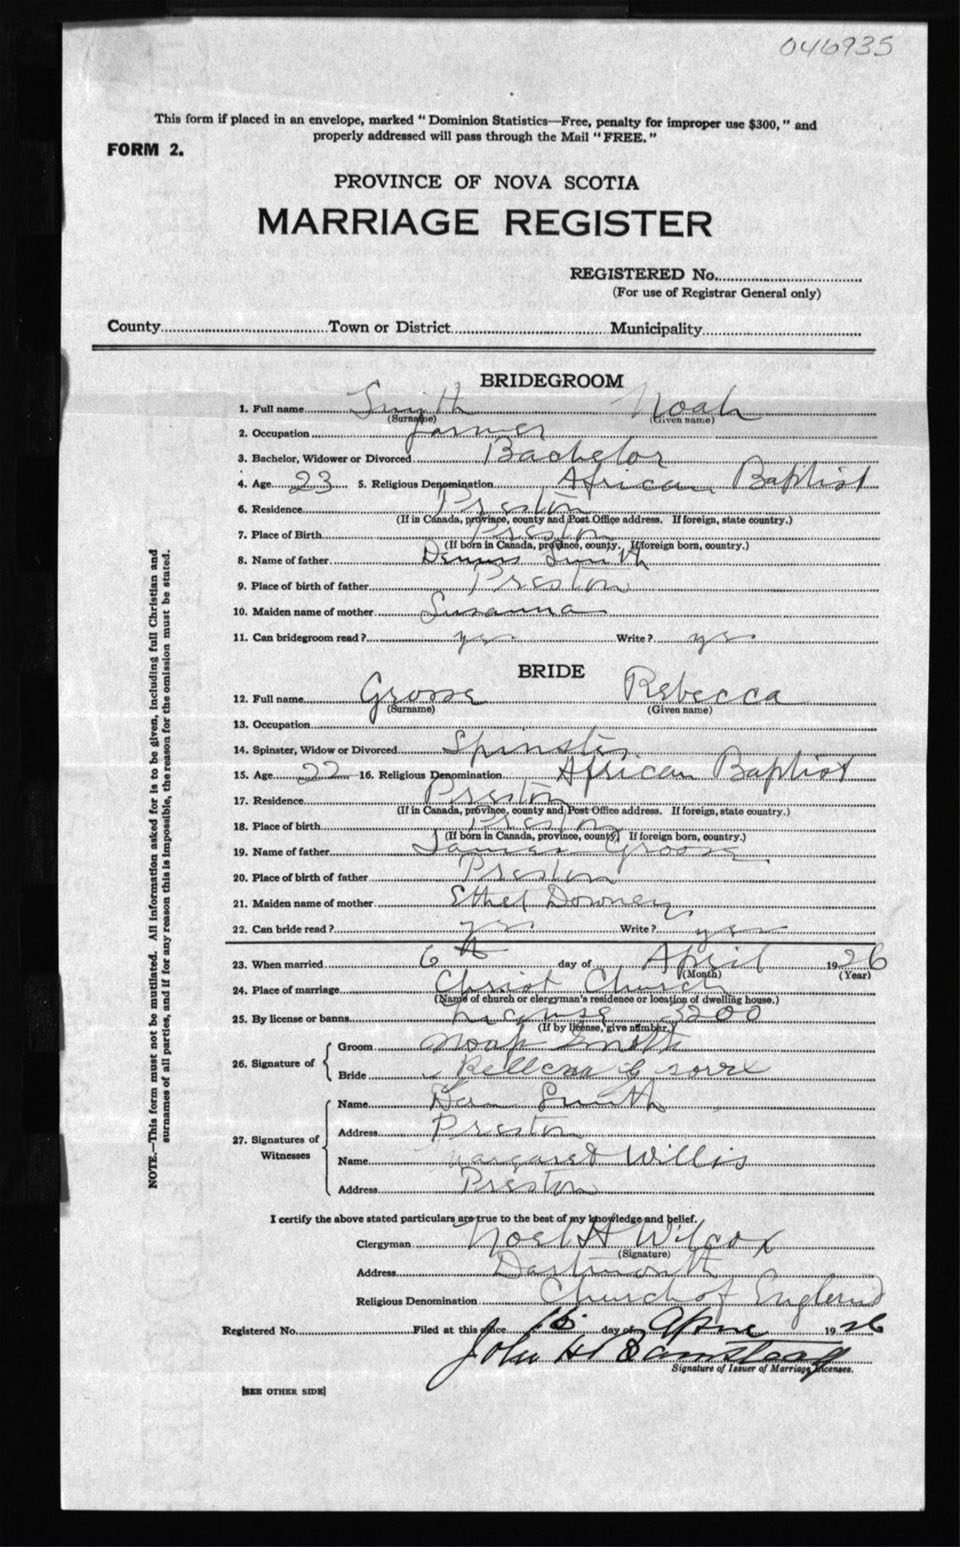 046935
This form if placed in an envelope, marked "Dominion Statistics—Free, penalty for improper use $300," and
properly addressed will pass through the Mail "FREE."
FORM 2.
PROVINCE OF NOVA SCOTIA
MARRIAGE REGISTER
REGISTERED No.
(For use of Registrar General only)
County Town or District Municipality
BRIDEGROOM
1. Full name Smith Noah
(Surname) (Given name)
2. Occupation farmer
3. Bachelor, Widower or Divorced Bachelor
4. Age 23 5. Religious Denomination African Baptist
6. Residence Preston
(If in Canada, province, county and Post Office address. If foreign, state country.)
7. Place of Birth Preston
(If born in Canada, province, county. If foreign born, country.)
8. Name of father Dennis Smith
9. Place of birth of father Preston
10. Maiden name of mother Susanna
11. Can bridegroom read? yes Write? yes
BRIDE
12. Full name Grosse Rebecca
(Surname) (Given name)
13. Occupation
14. Spinster, Widow or Divorced Spinster
15. Age 22 16. Religious Denomination African Baptist
17. Residence Preston
(If in Canada, province, county and Post Office address. If foreign, state country.)
18. Place of birth Preston
(If born in Canada, province, county. If foreign born, country.)
19. Name of father James Grosse
20. Place of birth of father Preston
21. Maiden name of mother Ethel Downey
22. Can bride read? yes Write? yes
23. When married 6th day of April 1926
(Month) (Year)
24. Place of marriage Christ Church
(Name of church or clergyman's residence or location of dwelling house.)
25. By license or banns License 3200
(If by license, give number.)
26. Signature of
Groom Noah Smith
Bride
27. Signatures of Witnesses
Name Smith
Address Preston
Name Margaret Willis
Address Preston
I certify the above stated particulars are true to the best of my knowledge and belief.
Clergyman Noel H Wilcox
(Signature)
Address Dartmouth
Religious Denomination Church of England
Registered No. Filed at this office 15 day of April 1926
John H
Signature of Issuer of Marriage Licenses.
[SEE OTHER SIDE]
NOTE.—This form must not be mutilated. All information asked for is to be given, including full Christian and
surnames of all parties, and if for any reason this is impossible, the reason for the omission must be stated.